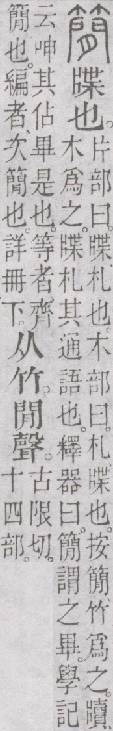 簡牒也。
片部曰。牒、札也。木部曰。札、牒也。按簡、竹爲之。牘、
木爲之。牒札其通語也。釋器曰。簡謂之畢。學記
云呻其佔畢是也。等者、齊
簡也。編者、次簡也。詳冊下。
从竹。閒聲。
古限切。
十四部。